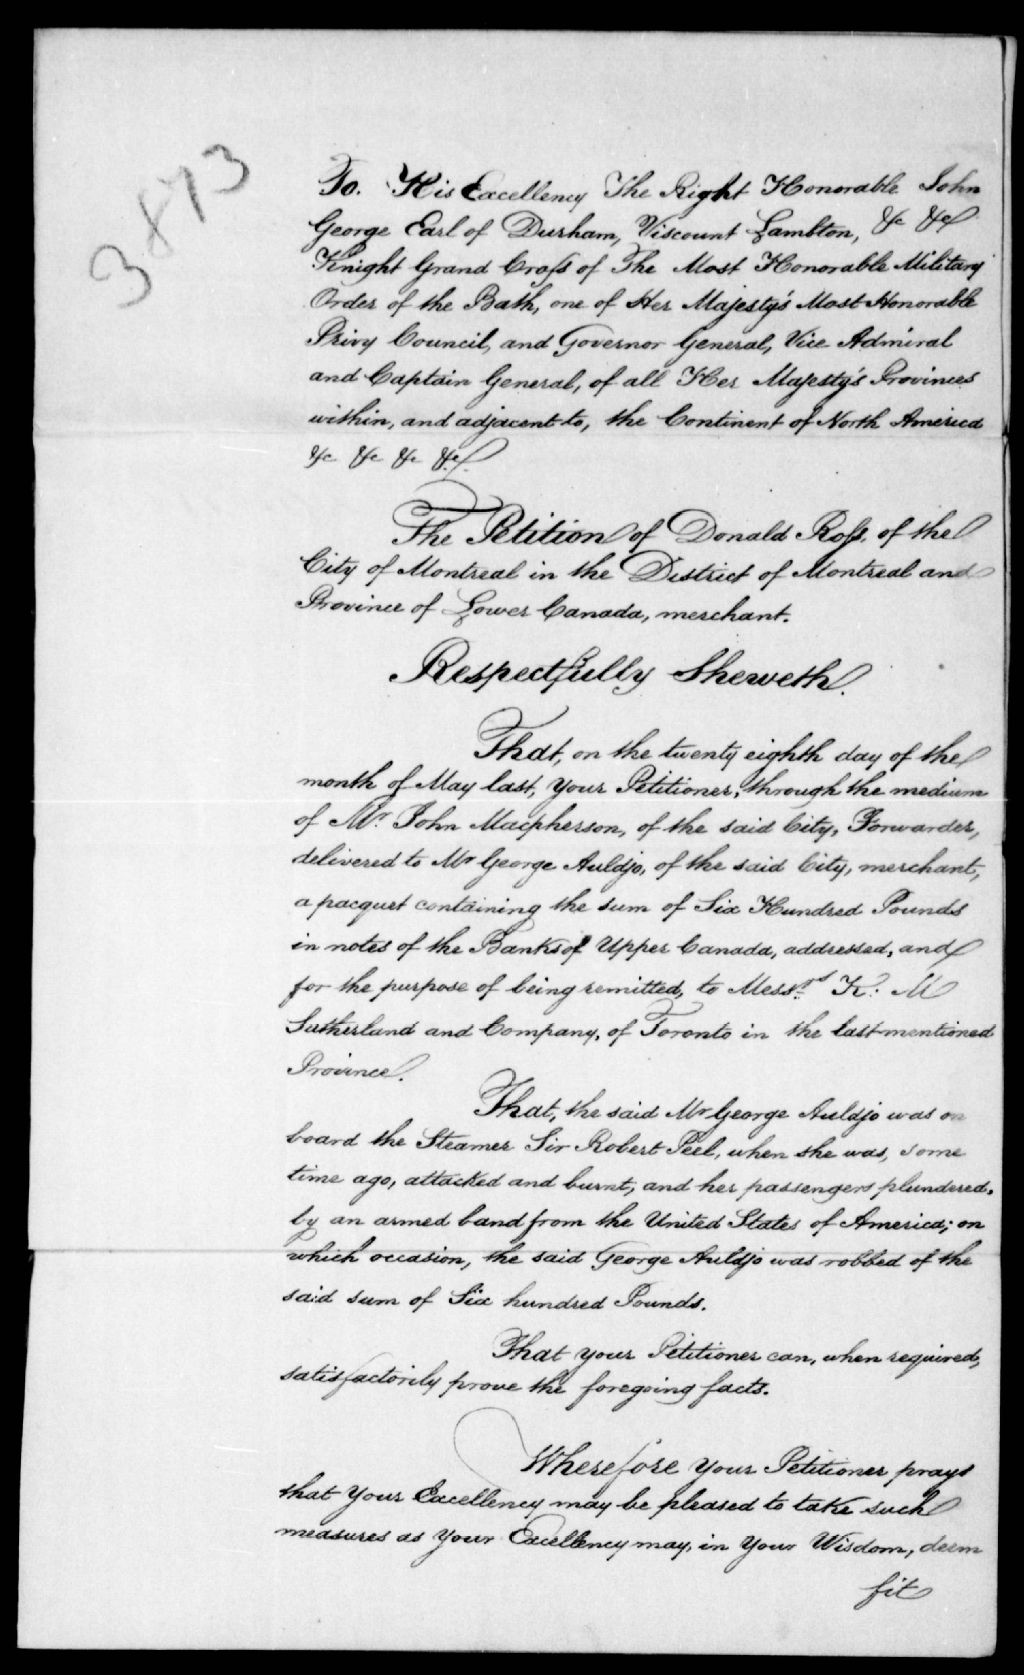 3873
To. His Excellency The Right Honorable John
George Earl of Durham, Viscount Lambton, &c &c
Knight Grand Cross of The Most Honorable Military
Order of the Bath, one of Her Majesty's Most Honorable
Privy Council, and Governor General, Vice Admiral
and Captain General, of all Her Majesty's Provinces
within, and adjacent to, the Continent of North America
&c &c &c &c.
The Petition of Donald Ross, of the
City of Montreal in the District of Montreal and
Province of Lower Canada, merchant.
Respectfully Sheweth.
That, on the twenty eighth day of the
month of May last, your Petitioner, through the medium
of Mr. John Macpherson, of the said City, Forwarder,
delivered to Mr George Auldjo, of the said City, merchant,
a pacquet containing the sum of Six Hundred Pounds
in notes of the Banks of Upper Canada, addressed, and
for the purpose of being remitted, to Messrs. K: M
Sutherland and Company, of Toronto in the last-mentioned
Province.
That, the said Mr George Auldjo was on
board the Steamer Sir Robert Peel, when she was, some
time ago, attacked and burnt, and her passengers plundered,
by an armed band from the United States of America; on
which occasion, the said George Auldjo was robbed of the
said sum of Six hundred Pounds.
That your Petitioner can, when required,
satisfactorily prove the foregoing facts.
Wherefore your Petitioner prays
that Your Excellency may be pleased to take such
measures as Your Excellency may, in Your Wisdom, deem
fit